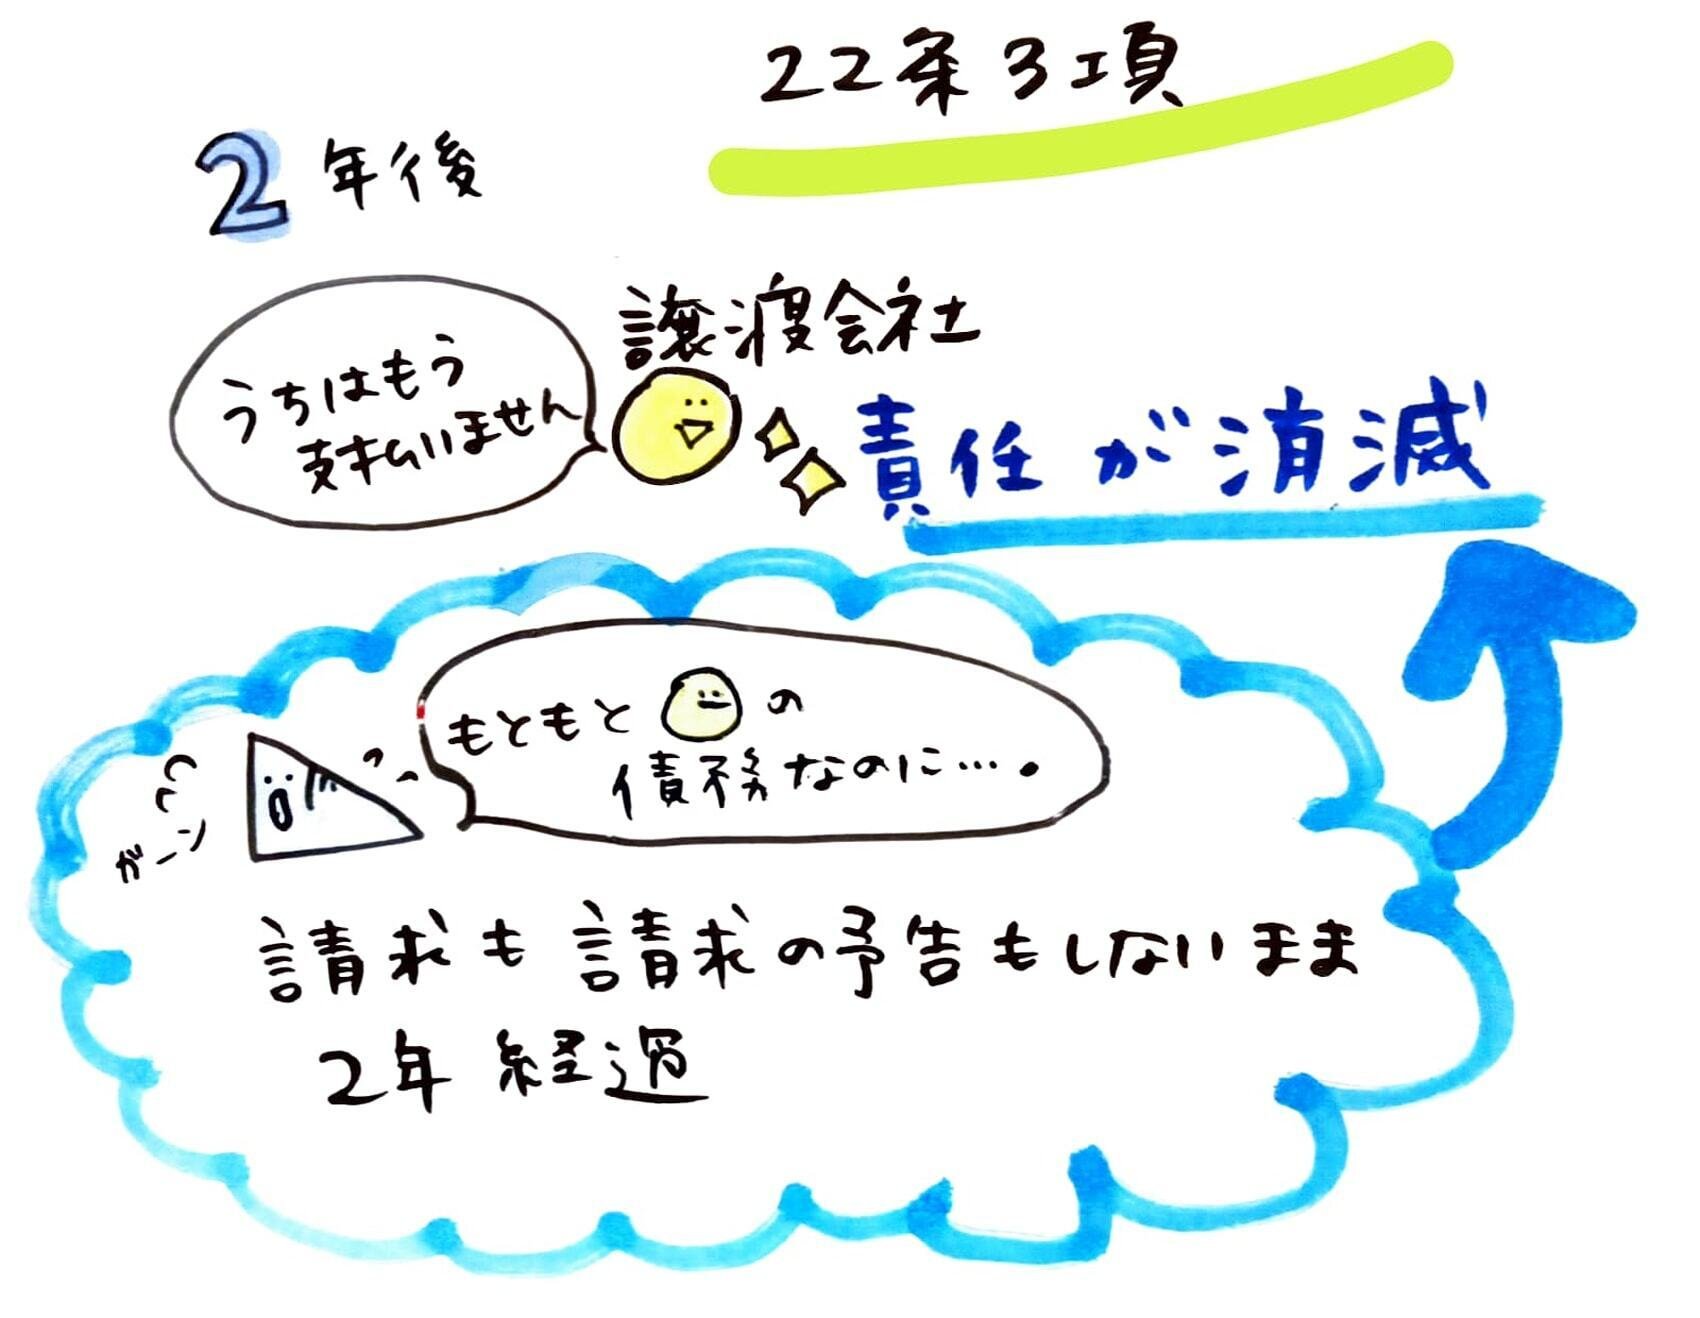 22条3項
2年後
譲渡会社
うちはもう
支払いません
責任が消滅
もともと の
債務なのに…。
ガーン
請求も請求の予告もしないまま
2年経過